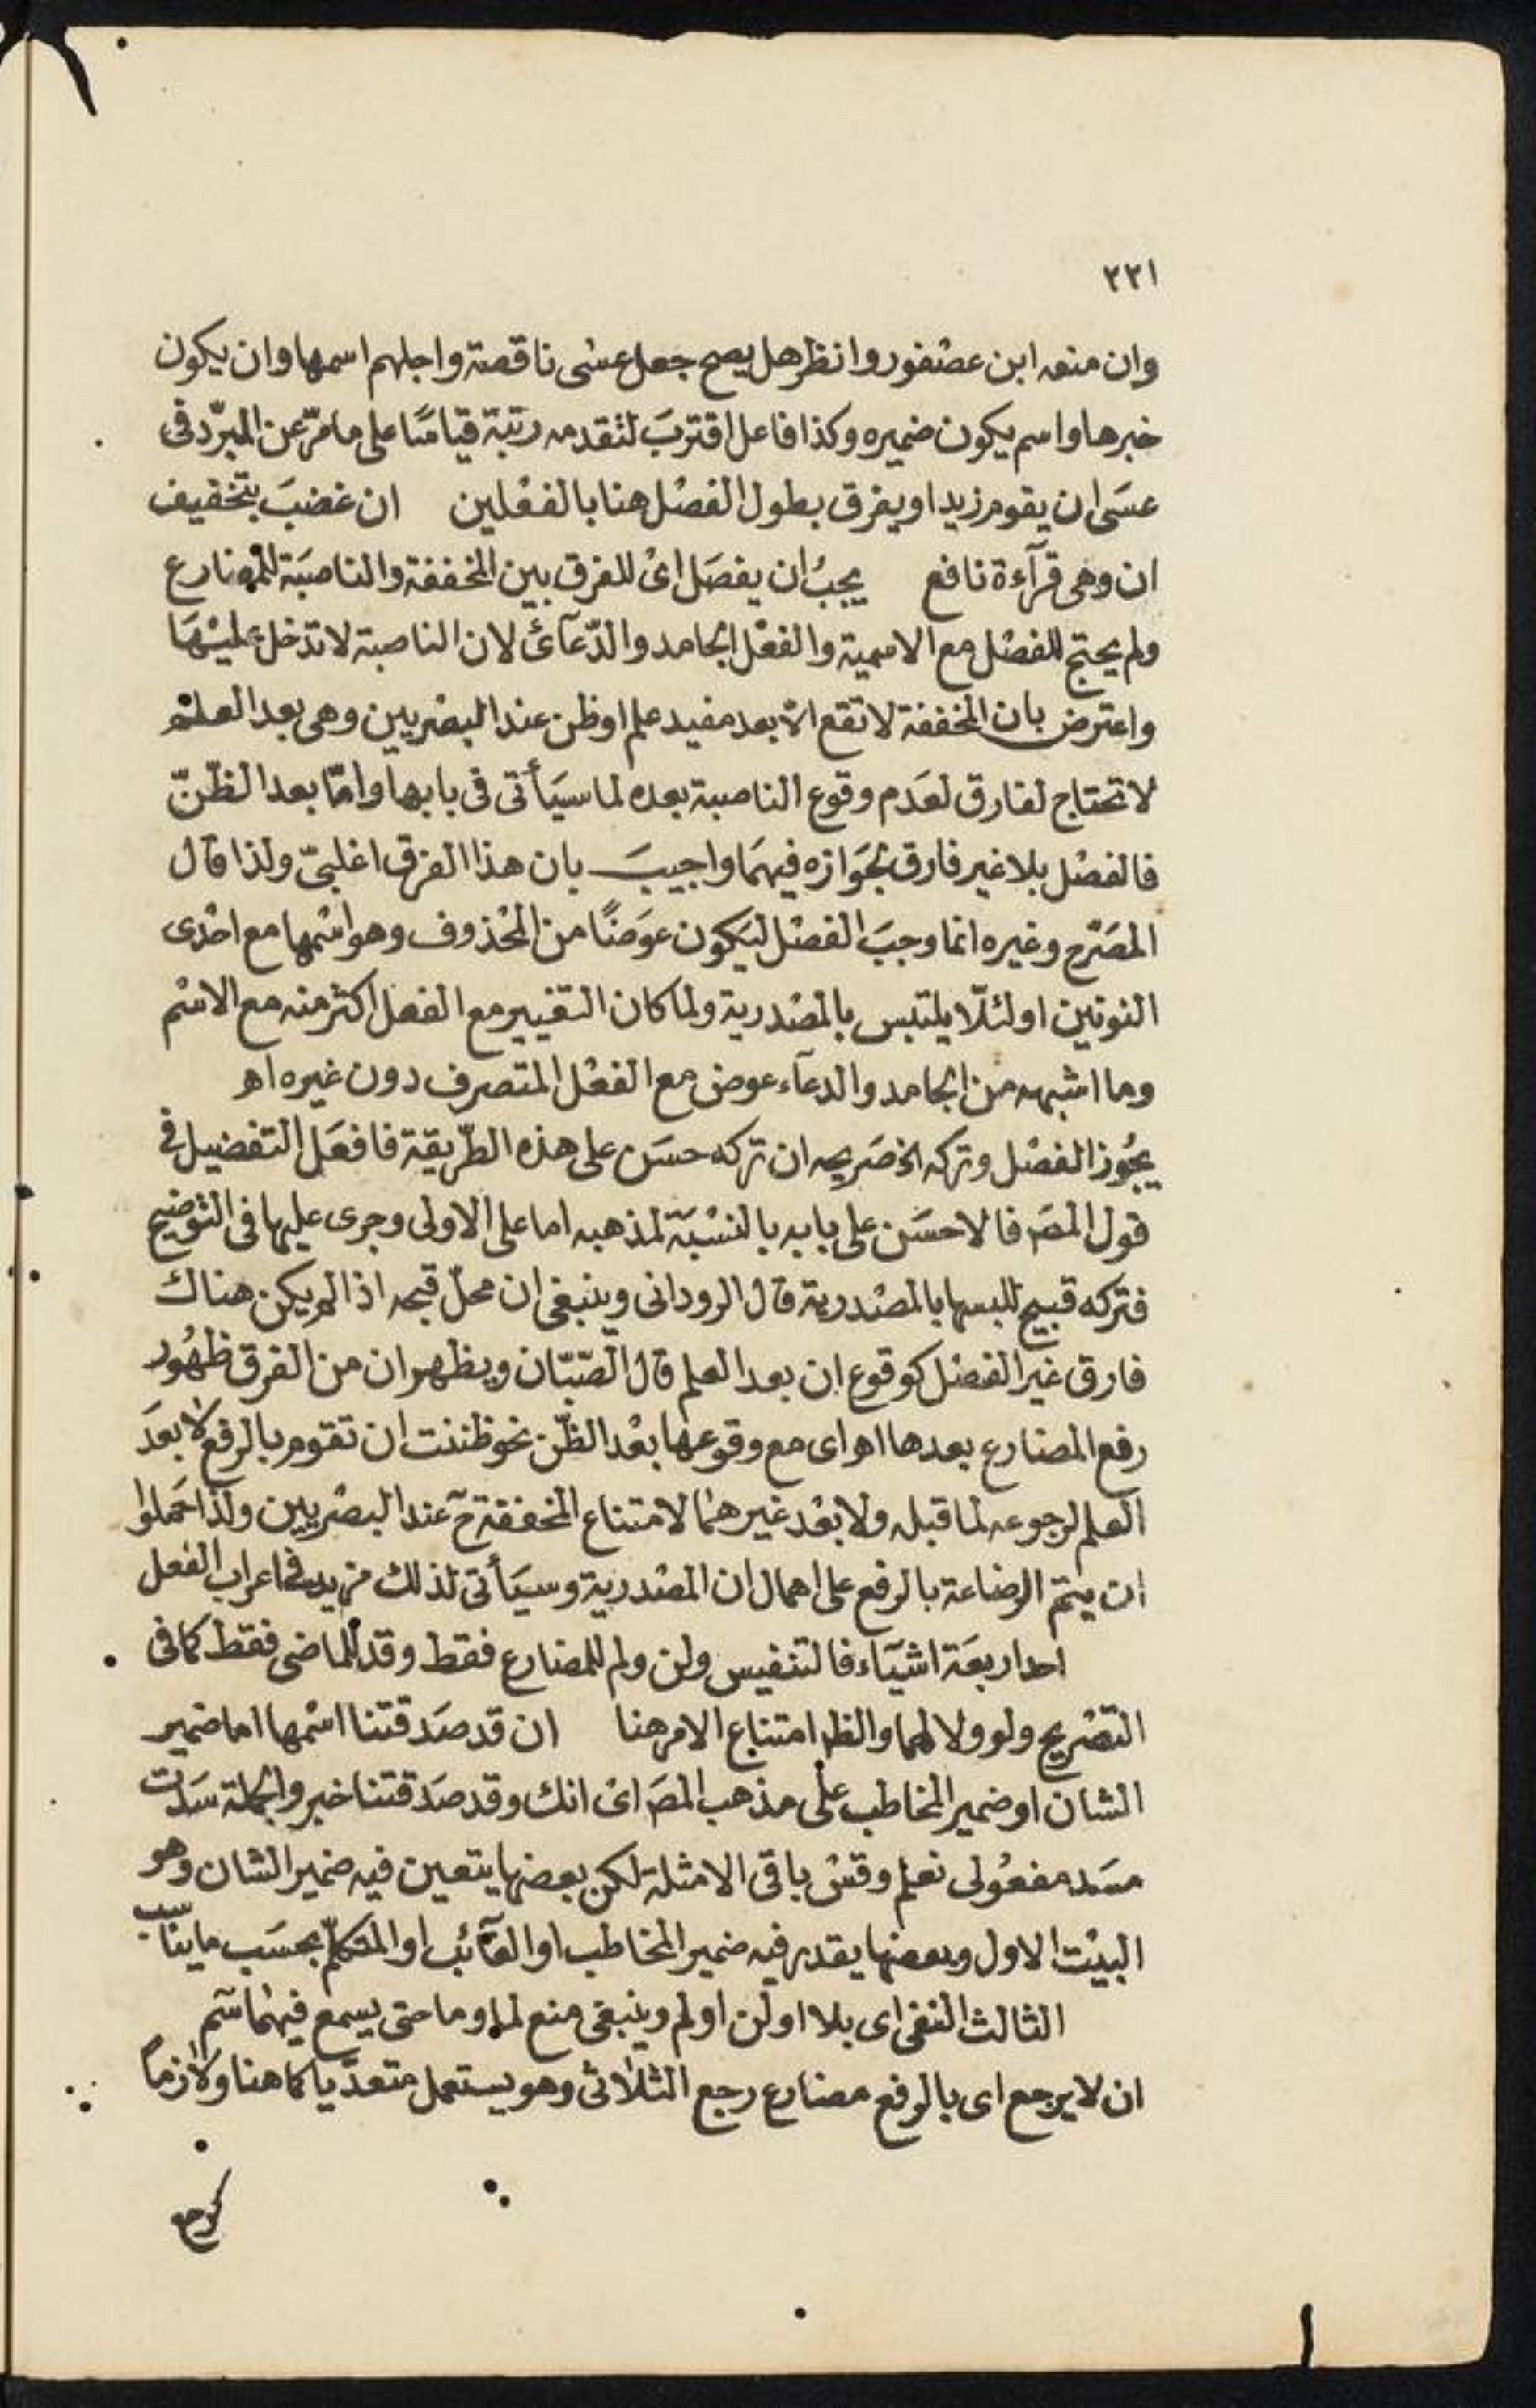 ٢٢١
وان منعه ابن عصفور وانظر هل يصح جعل عسى ناقصة واجلهم اسمها وان يكون
خبرها واسم يكون ضميره وكذا فاعل اقتربَ لتقدمه رتبة قياسًا على ما مرّ عن المبرّد فى
عسَى ان يقوم زيد او يفرق بطول الفصْل هنا بالفعْلين    ان غضبَ بتخفيف
ان وهى قرآءة نافع    يجبُ ان يفصَل اىْ للفرق بين المخففة والناصبَة للمضارع
ولم يحتج للفصْل مع الاسمية والفعْل الجامد والدّعآئ لان الناصبة لا تدخل عليْهَا
واعترض بان المخففة لا تقع الا بعد مفيد علم او ظن عند البصْريين وهى بعد العلْم
لا تحتاج لفارق لعَدم وقوع الناصبة بعده لما سيَأتى فى بابها وامّا بعد الظّنّ
فالفصْل بلا غير فارق لجَوازه فيهمَا واجيبَ بان هذا الفرق اغلبىّ ولذا قال
المصَرّح وغيره انما وجبَ الفصْل ليَكون عوَضًا من المحْذوف وهو اسْمها مع احْدى
النونين او لئلّا يلتبس بالمصْدرية ولما كان التغيير مع الفعل اكثر منه مع الاسْم
وما اشبهه من الجامد والدعآء عوض مع الفعْل المتصرف دون غيره اه
يجُوز الفصْل وتركه الخ صَريحه ان تركه حسَن على هذه الطّريقة فافعَل التفضيل فى
قول المصَ فالاحسَن على بابه بالنسْبَة لمذهبه اما على الاولى وجرى عليها فى التوضيح
فتركه قبيح للبسها بالمصْدرية قال الرودانى وينبغى ان محلّ قبحه اذا لم يكن هناك
فارق غير الفصْل كوقوع ان بعد العلم قال الصّبّان ويظهر ان من الفرق ظهُور
رفع المضارع بعدها اه اى مع وقوعها بعْد الظّن نحو ظننت ان تقوم بالرفع لا بعدَ
العلم لرجوعه لما قبله ولا بعْد غيرهما لامتناع المخففة حٓ عند البصْريين ولذا حَملوا
ان يتمّ الرضاعة بالرفع على اهمال ان المصْدرية وسيَأتى لذلك مزيد فى اعراب الفعل
احد اربعَة اشيَآء فالتنفيس ولن ولم للمضارع فقط وقد للماضى فقط كما فى
التصْريح ولو ولا لهما والظ امتناع الامر هنا    ان قد صدَقتنا اسْمها اما ضمير
الشان او ضمير المخاطب على مذهب المصَ اىْ انك وقد صدَقتنا خبر والجملة سَدت
مسَد مفعُولى نعلم وقسْ باقى الامثلة لكن بعضها يتعين فيه ضمير الشان وهو
البيْت الاول وبعضها يقدر فيه ضمير المخاطب او الغآئب او المتكلّم بحسَب ما يناسب
الثالث النفى اى بلا او لن او لم وينبغى منع لما وما حتى يسمع فيهما شم
ان لا يرجع اى بالرفع مضارع رجع الثلاثى وهو يستعمل متعدّيا كما هنا ولازماً